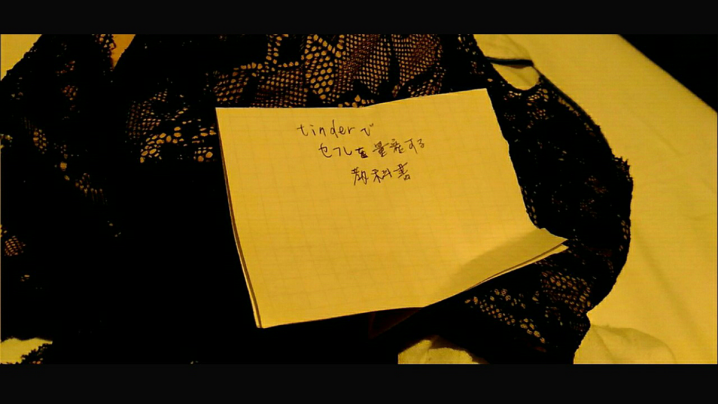 tinderで
セフレを量産する
教科書